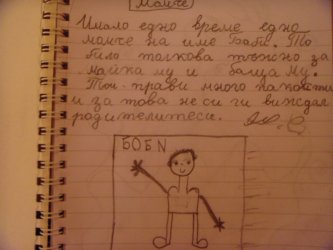 Момче
Имало едно време едно
момче на име Боби. То
било толкова тъжно за
майка му и баща му.
Той прави много пакости
и за това не си ги виждал
родителитеси.
БОБИ